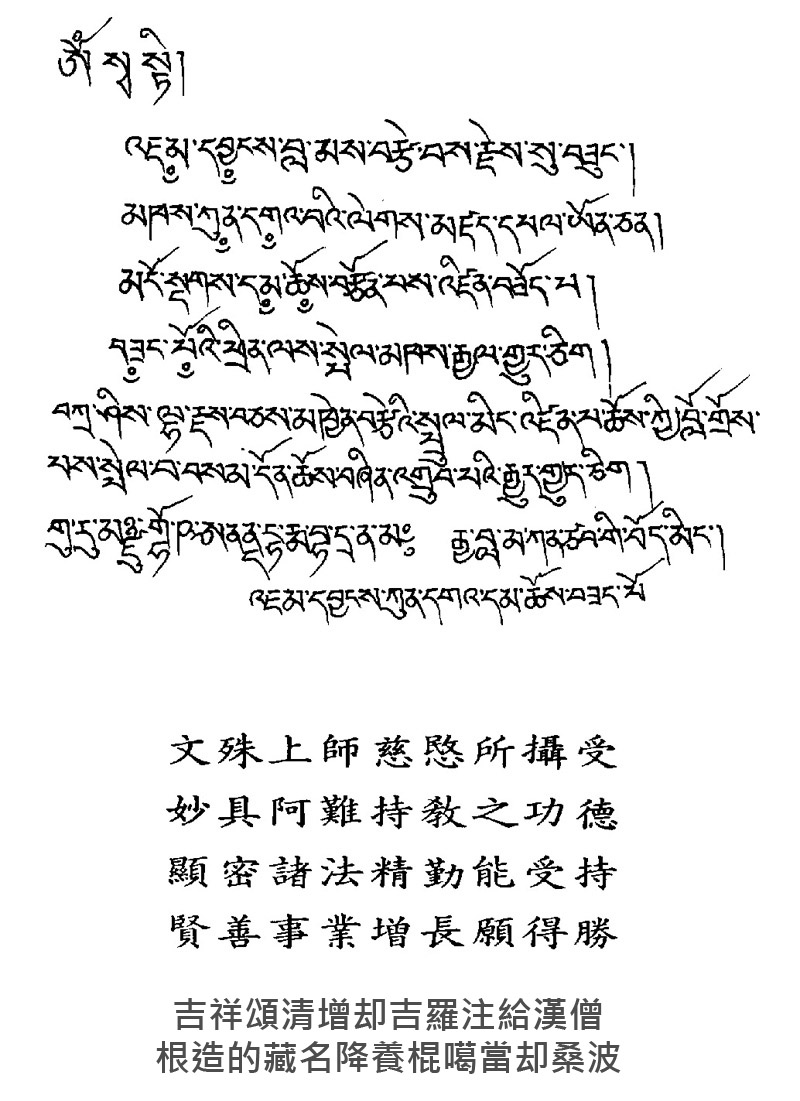 ཨོཾ སྭ སྟི།
འཇམ་དབྱངས་བླ་མས་བརྩེ་བས་རྗེས་སུ་བཟུང་།
མཁས་ཀུན་དགའ་བའི་ལེགས་མཛད་དཔལ་ཡོན་ཅན།
མདོ་སྔགས་དམ་ཆོས་བརྩོན་པས་འཛིན་བཟོད་པ།
བཟང་པོའི་ཕྲིན་ལས་སྤེལ་མཁས་རྒྱལ་གྱུར་ཅིག །
བཀྲ་ཤིས་ལྷ་རྫས་བཅས་མཁྱེན་བརྩེའི་སྤྲུལ་མིང་འཛིན་པ་ཆོས་ཀྱི་བློ་གྲོས་
པས་སྤེལ་བ་དོན་ཆོས་བཞིན་འགྲུབ་པའི་རྒྱུར་གྱུར་ཅིག །
གུ་རུ་མཉྫུ་གྷོ་ཥ་ ན་མཿ རྒྱ་བླ་མ་ གི་བོད་མིང་།
འཇམ་དབྱངས་ཀུན་དགའ་དམ་ཆོས་བཟང་པོ
文殊上師慈愍所攝受
妙具阿難持教之功德
顯密諸法精勤能受持
賢善事業增長願得勝
吉祥頌清增却吉羅注給漢僧
根造的藏名降養棍噶當却桑波